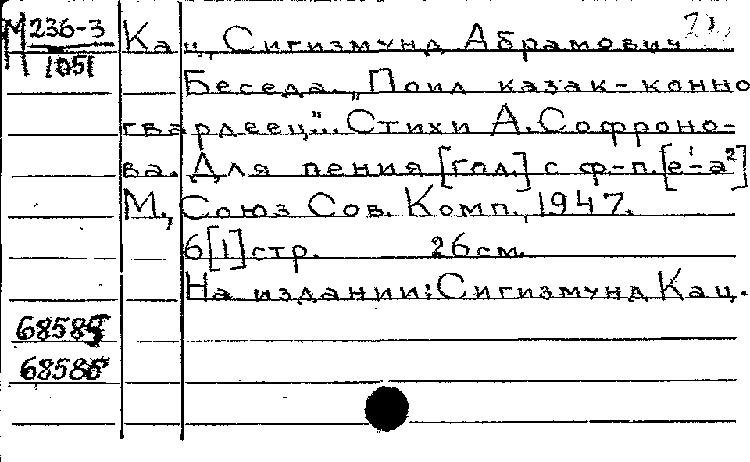 М 236-3
1051
Кац, Сигизмунд Абрамович
Беседа. „Поил казак-конно
гвардеец"... Стихи А. Софроно-
ва. Для пения [гол.] с ф-п. [e¹-a²]
М., Союз Сов. Комп., 1947.
6[1]стр. 26см.
На издании: Сигизмунд Кац.
68585
68586